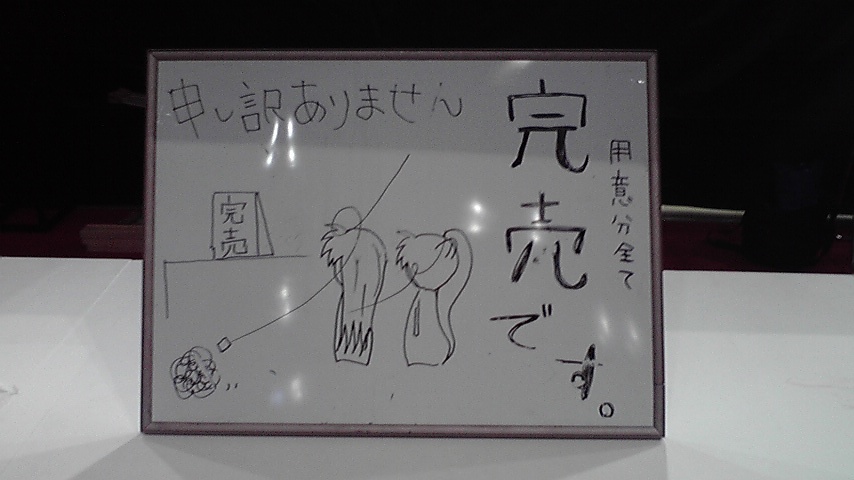 申し訳ありません
用意分全て
完売です。
完売